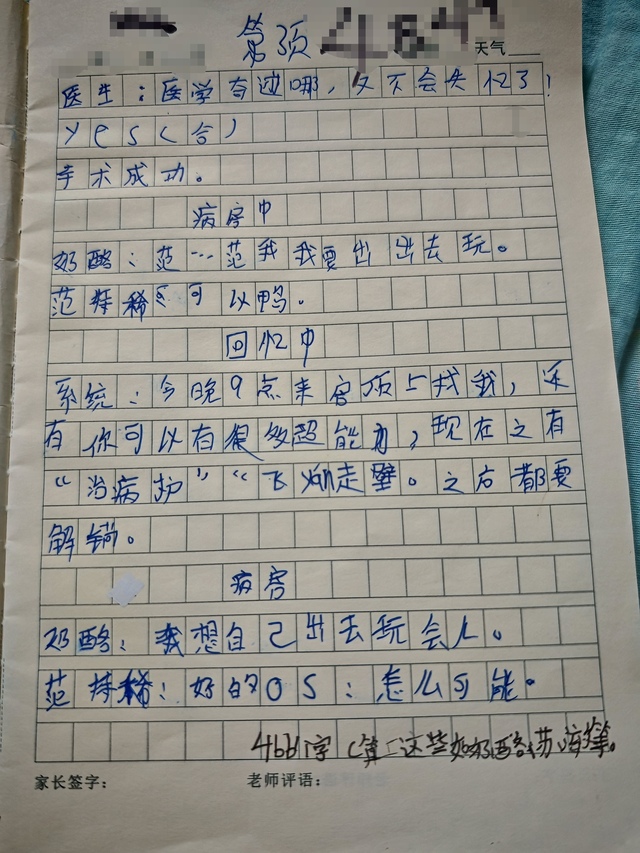 第页 天气
医生：医学有过哪，又不会失亿了！
yes（合）
手术成功。
病房中
奶酪：范…范我我要出出去玩。
范 稀：可以鸭。
回忆中
系统：今晚9点来客顶上找我，还
有你可以有很多超能力，现在之有
“治病护”“飞 走壁。之后都要
解锁。
病客
奶酪：我想自己出去玩会儿。
范 稀：好的OS：怎么可能。
字（第 这些如奶酪
家长签字： 老师评语：